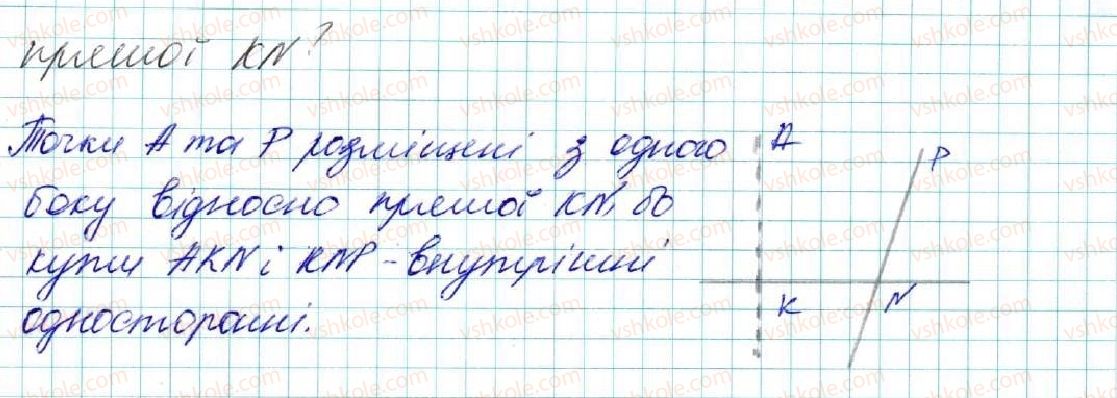 прямої KN?
Точки A та P розміщені з одного
боку відносно прямої KN, бо
кути AKN і KNP - внутрішні
односторонні.
A
P
K
N
vshkole.com